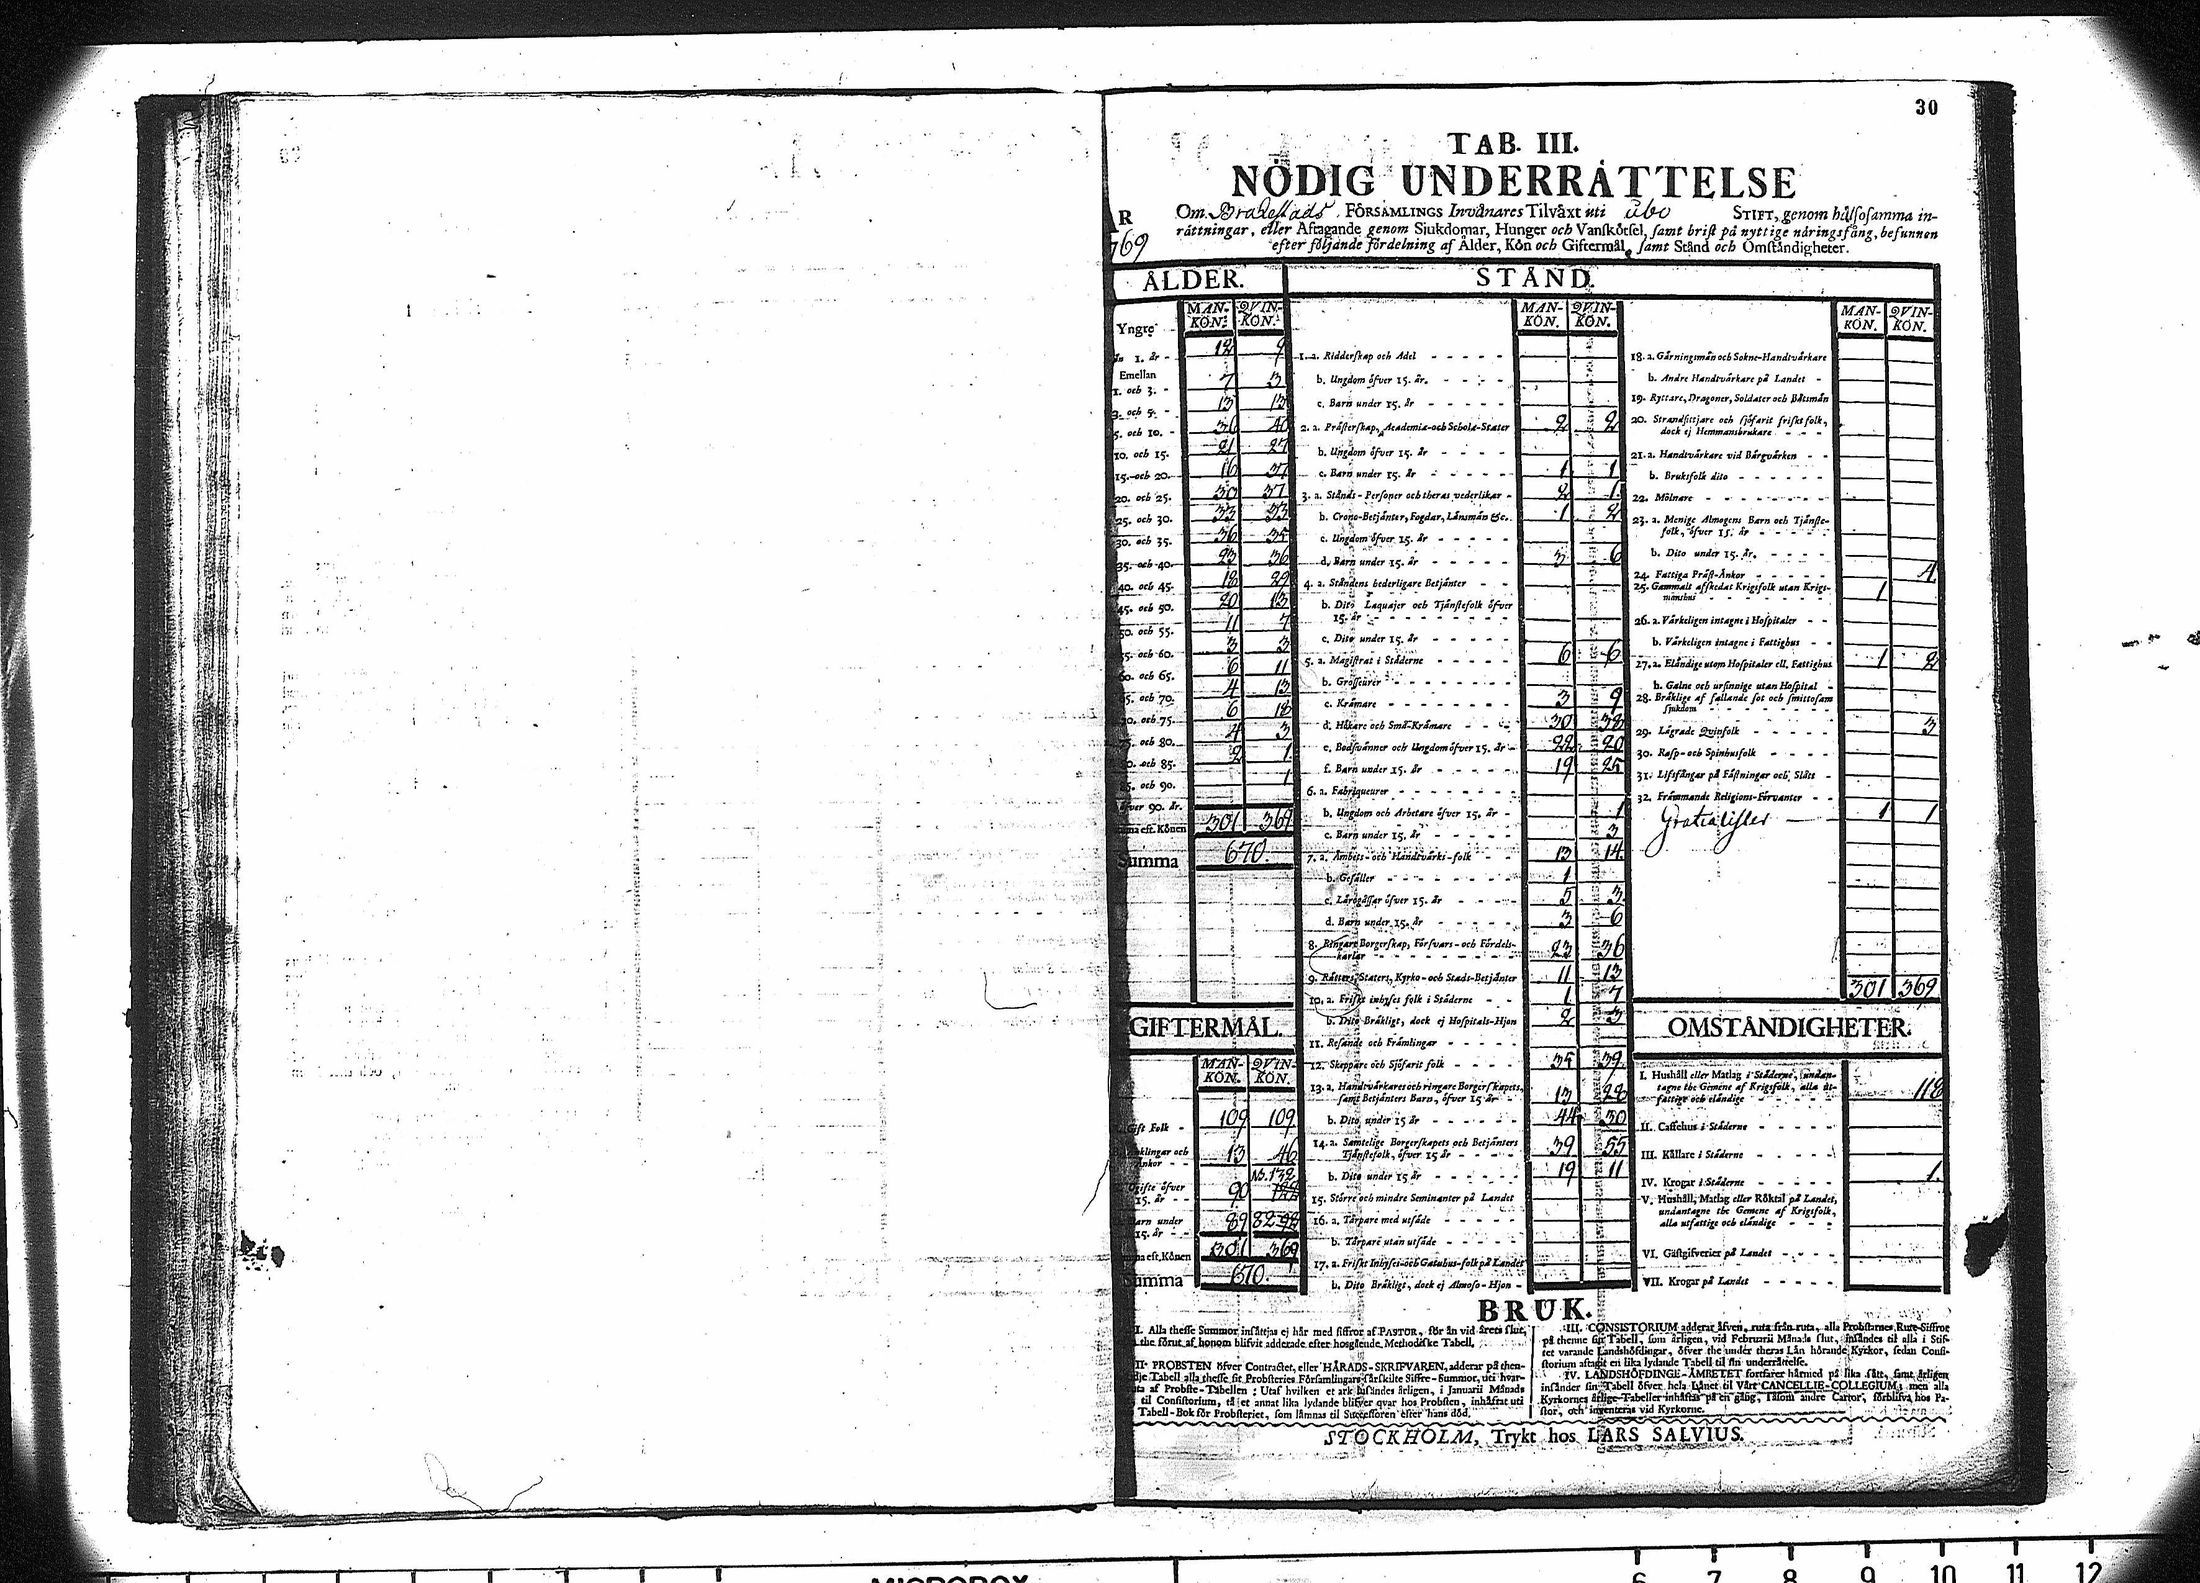 30
TAB. III.
NÖDIG UNDERRÅTTELSE
ÅR 1769
Om Brahestads FÖRSAMLINGS Invånares Tilväxt uti Åbo STIFT, genom hälsosamma in-
råttningar, eller Aftagande genom Sjukdomar, Hunger och Vanskötsel, samt brist på nyttige näringsfång, befunnen
efter följande fördelning af Ålder, Kön och Giftermål, samt Stånd och Omståndigheter.
ÅLDER.
MAN-KÖN. QVIN-KÖN.
Yngre
än 1. år - 12 9
Emellan
1. och 3. - 7 3
3. och 5. - 13 13
5. och 10. - 36 40
10. och 15. 21 27
15. och 20. 16 37
20. och 25. 30 37
25. och 30. 33 33
30. och 35. 36 35
35. och 40. 23 36
40. och 45. 18 29
45. och 50. 20 13
50. och 55. 11 7
55. och 60. 3 3
60. och 65. 6 11
65. och 70. 4 13
70. och 75. 6 18
75. och 80. 4 3
80. och 85. 2 1
85. och 90. 1
öfver 90. år.
Summa eft. Könen 301 369
Summa 670.
GIFTERMÅL.
MAN-KÖN. QVIN-KÖN.
Gift Folk - 109 109
Änklingar och Änkor - - 13 46
Ogifte öfver 15. år - - 90 132
Barn under 15. år - - 89 82
Summa eft. Könen 301 369
Summa 670.
STÅND.
MAN-KÖN. QVIN-KÖN.
1. a. Ridderskap och Adel
b. Ungdom öfver 15. år.
c. Barn under 15. år
2. a. Prästerskap, Academiæ- och Scholæ-Stater 2 2
b. Ungdom öfver 15. år
c. Barn under 15. år 1 1
3. a. Stånds-Personer och theras vederlikar 2 1
b. Crono-Betjänter, Fogdar, Länsmän &c. 1 2
c. Ungdom öfver 15. år
d. Barn under 15. år 3 6
4. a. Ståndens hederligare Betjänter
b. Dito Laquajer och Tjänstefolk öfver
15. år
c. Dito under 15. år
5. a. Magistrat i Städerne 6 6
b. Grosseurer
c. Krämare 3 9
d. Hökare och Små-Krämare 30 38
e. Bodsvänner och Ungdom öfver 15. år 22 20
f. Barn under 15. år 19 25
6. a. Fabriqueurer
b. Ungdom och Arbetare öfver 15. år 1
c. Barn under 15. år 3
7. a. Ämbets- och Handtvärks-folk 13 14
b. Gesäller 1
c. Lärogåssar öfver 15. år 5 3
d. Barn under 15. år 3 6
8. Ringare Borgerskap, Försvars- och Fördels-
karlar 23 36
9. Rätters, Staters, Kyrko- och Stads-Betjänter 11 13
10. a. Friskt inhyses folk i Städerne 1 7
b. Dito Bräkligt, dock ej Hospitals-Hjon 2 3
11. Resande och Främlingar
12. Skeppare och Sjöfarit folk 35 39
13. a. Handtvärkares och ringare Borgerskapets,
samt Betjänters Barn, öfver 15 år 13 28
b. Dito under 15 år 44 30
14. a. Samtelige Borgerskapets och Betjänters
Tjänstefolk, öfver 15 år 39 55
b. Dito under 15 år 19 11
15. Större och mindre Seminanter på Landet
16. a. Torpare med utsäde
b. Torpare utan utsäde
17. a. Friskt Inhyses- och Gatuhus-folk på Landet
b. Dito Bräkligt, dock ej Almoso-Hjon
MAN-KÖN. QVIN-KÖN.
18. a. Gärningsmän och Sokne-Handtvärkare
b. Andre Handtvärkare på Landet
19. Ryttare, Dragoner, Soldater och Båtsmän
20. Strandsittjare och sjöfarit friskt folk,
dock ej Hemmansbrukare
21. a. Handtvärkare vid Bärgvärken
b. Bruksfolk dito
22. Mölnare
23. a. Menige Almogens Barn och Tjänste-
folk, öfver 15. år
b. Dito under 15. år.
24. Fattiga Präst-Änkor 4
25. Gammalt afskedat Krigsfolk utan Krigs-
manshus 1
26. a. Värkeligen intagne i Hospitaler
b. Värkeligen intagne i Fattighus
27. a. Eländige utom Hospitaler ell. Fattighus 1 2
b. Galne och ursinnige utan Hospital
28. Bräklige af fallande sot och smittosam
sjukdom
29. Lägrade Qvinfolk 3
30. Rasp- och Spinhusfolk
31. Lifsfångar på Fästningar och Slått
32. Främmande Religions-Förvanter
Gratialister 1 1
301 369
OMSTÅNDIGHETER.
I. Hushåll eller Matlag i Städerne, undan-
tagne the Gemene af Krigsfolk, alla ut-
fattige och eländige 118
II. Caffehus i Städerne
III. Källare i Städerne
IV. Krogar i Städerne 1.
V. Hushåll, Matlag eller Röktal på Landet,
undantagne the Gemene af Krigsfolk,
alla utfattige och eländige
VI. Gästgifverier på Landet
VII. Krogar på Landet
BRUK.
I. Alla thesse Summor insättjas ej här med siffror af PASTOR, för än vid årets slut,
the förut af honom blifvit adderade efter hosgående Methodiske Tabell.
II. PROBSTEN öfver Contractet, eller HÄRADS-SKRIFVAREN, adderar på then-
dje Tabell alla thesse sit Probsteries Församlingars särskilte Siffre-Summor, uti hvar-
ta af Probste-Tabellen: Utaf hvilken et ark insändes årligen, i Januarii Månads
til Consistorium, tå et annat lika lydande blifver qvar hos Probsten, inhäftat uti
Tabell-Bok för Probsteriet, som lämnas til Successoren efter hans död.
III. CONSISTORIUM adderar äfven, ruta från ruta, alla Probstarnes Rute-Siffror
på thenne sin Tabell, som årligen, vid Februarii Månads slut, insändes til alla i Stif-
tet varande Landshöfdingar, öfver the under theras Län hörande Kyrkor, sedan Consi-
storium aftagit en lika lydande Tabell til sin underrättelse.
IV. LANDSHÖFDINGE-ÄMBETET fortfarer härmed på lika sätt, samt årligen
insänder sin Tabell öfver hela Länet til Vårt CANCELLIE-COLLEGIUM; men alla
Kyrkornes årlige Tabeller inhäftas på en gång, såsom andre Cartor, förblifva hos Pa-
stor, och inventeras vid Kyrkorne.
STOCKHOLM, Trykt hos LARS SALVIUS.
6 7 8 9 10 11 12